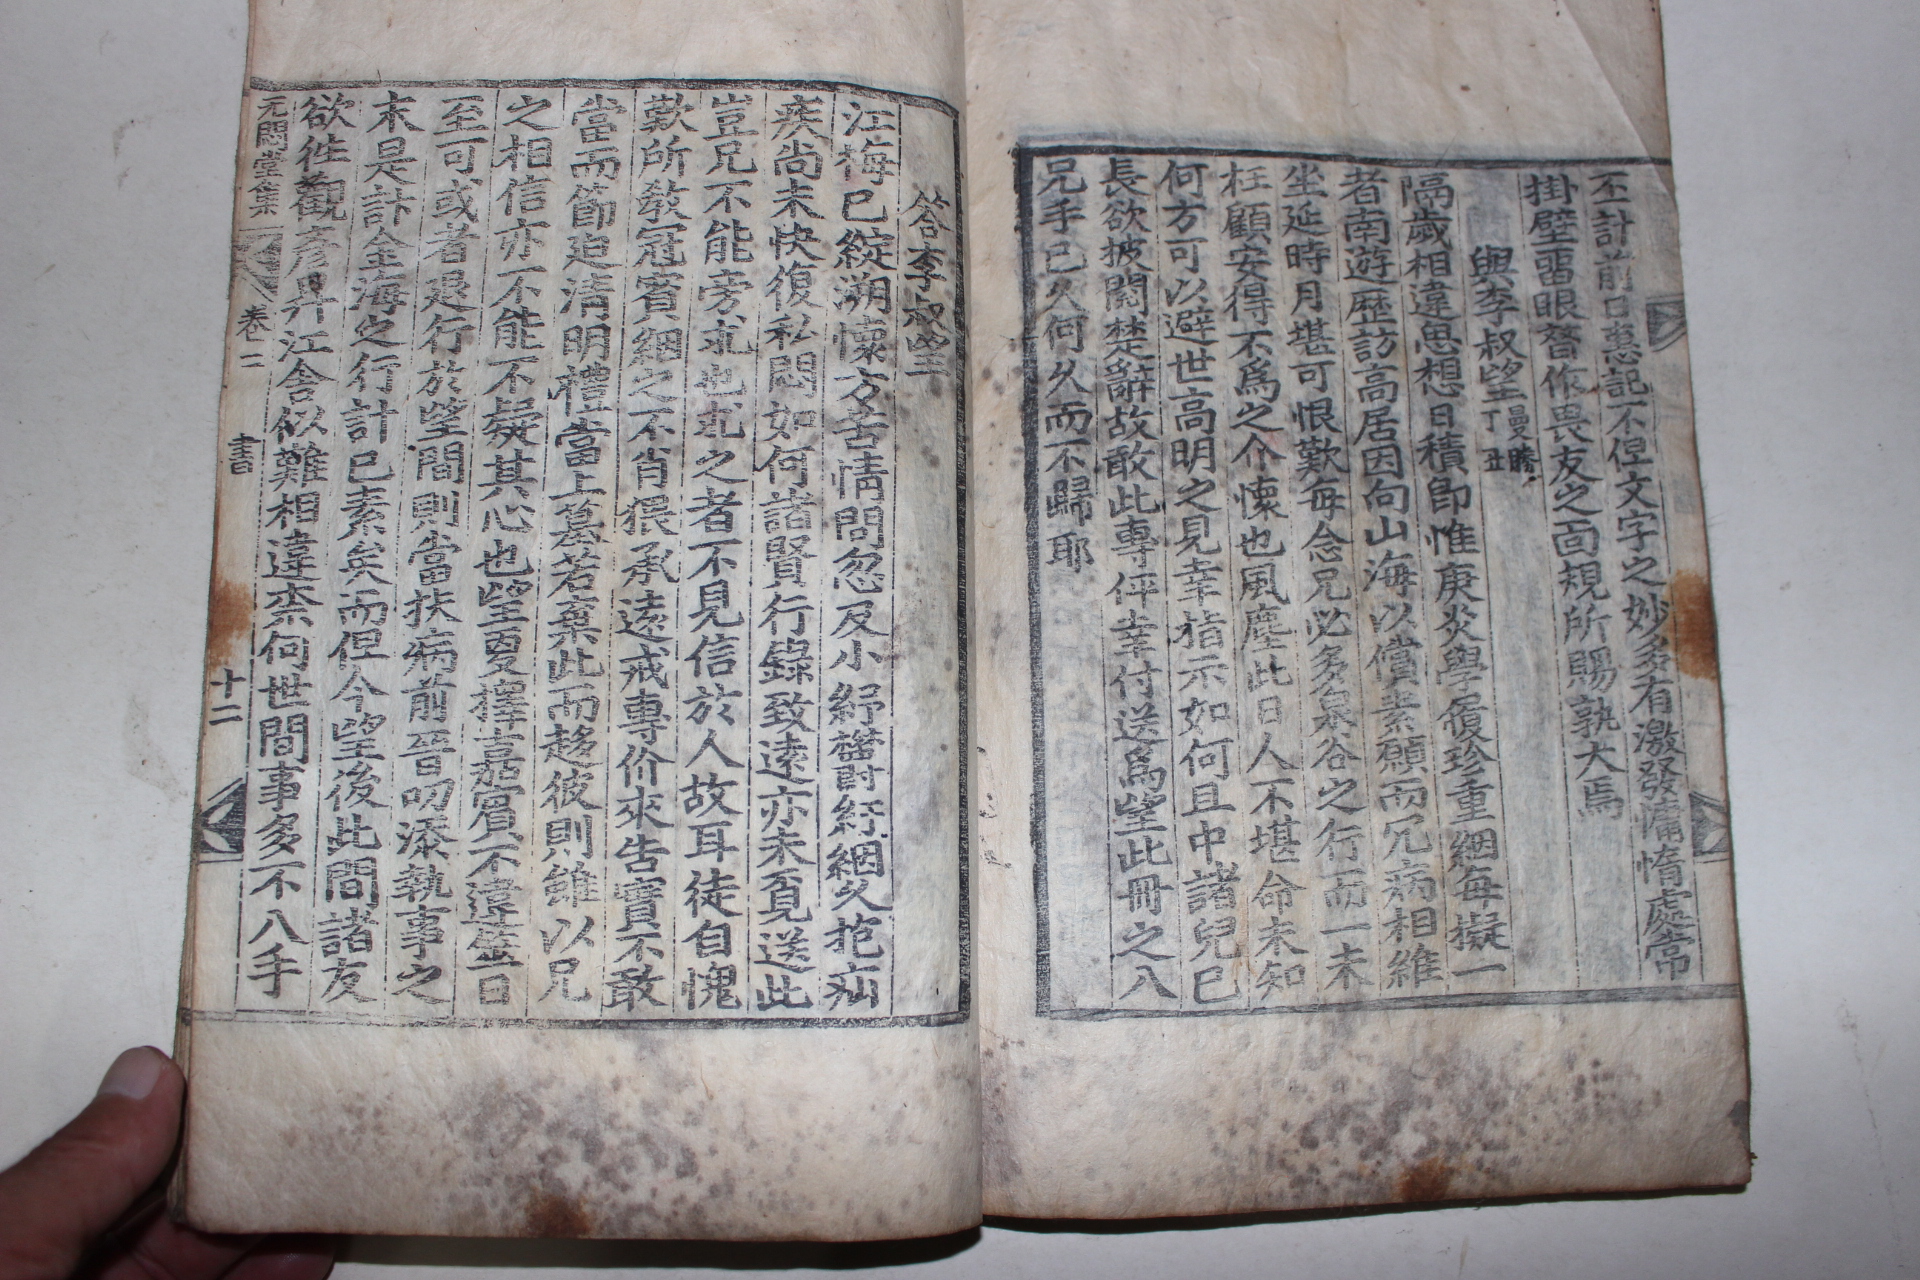 至計前日惠記不但文字之妙多有激發慵惰處當
掛壁留眼替作畏友之面規所賜孰大焉
與李叔望曼勝丁丑
隔歲相違思想日積卽惟庚炎學履珍重綑每擬一
者南遊歷訪高居因向山海以償素願而冗病相維
坐延時月堪可恨歎每念兄必多泉谷之行而一未
枉顧安得不爲之介懷也風塵此日人不堪命未知
何方可以避世高明之見幸指示如何且中諸兒已
長欲披閱楚辭故敢此專伻幸付送爲望此冊之入
兄手已久何久而不歸耶
答李叔望
江梅已綻溯懷方苦情問忽及小紓欝紆綑久抱疝
疾尙未快復私悶如何諸賢行錄致遠亦未覓送此
豈兄不能旁求也求之者不見信於人故耳徒自愧
歎所敎冠賓綑之不肖猥承遠戒專价來告實不敢
當而節迫淸明禮當上墓若棄此而趍彼則雖以兄
之相信亦不能不疑其心也望更擇嘉賓不違筮日
至可或者退行於望間則當扶病前晉叨添執事之
末是計金海之行計已素矣而但今望後此間諸友
欲徃觀彥昇江舍似難相違柰何世間事多不入手
无悶堂集 卷二 書 十二